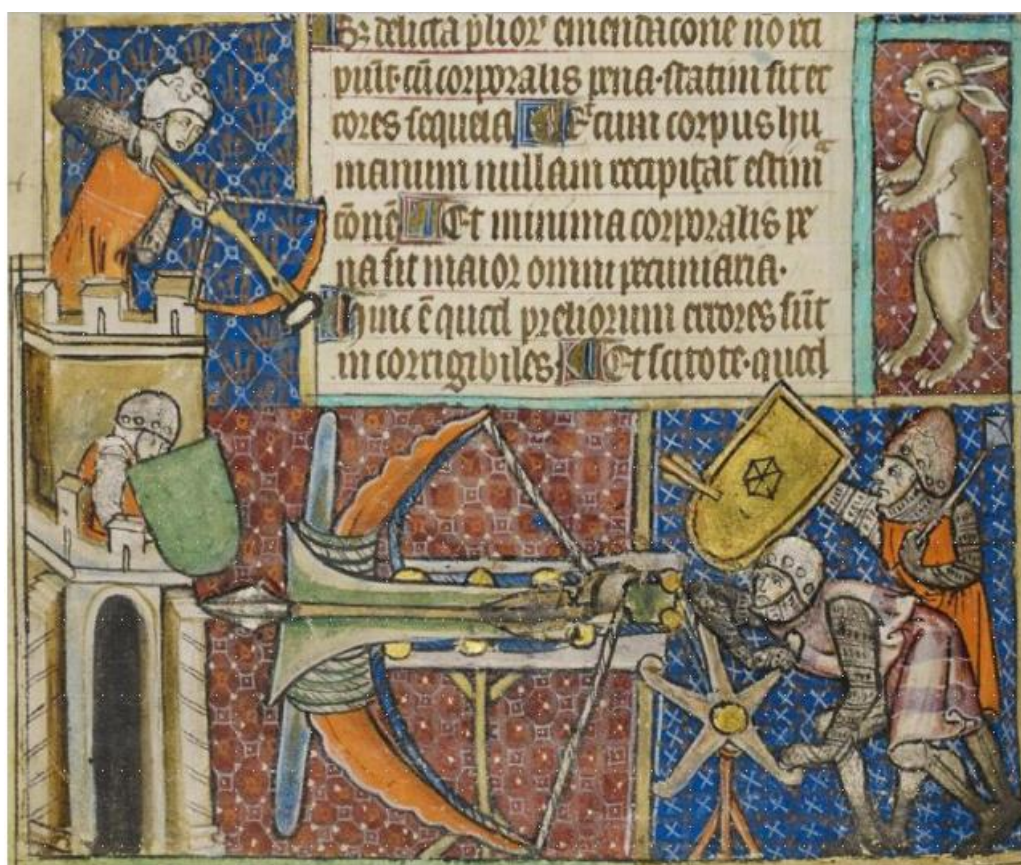 Et delicta plior emendacōne nō reci
piūt· cū corporalis pena· statim sit er
rores sequela Et cum corpus hu
manum nullam recipiat estimᵃ
cōnē Et minima corporalis pe
na sit maior omni pecuniaria·
hinc ē quod preliorum errores sūt
incorrigibiles· Et scitote· quod